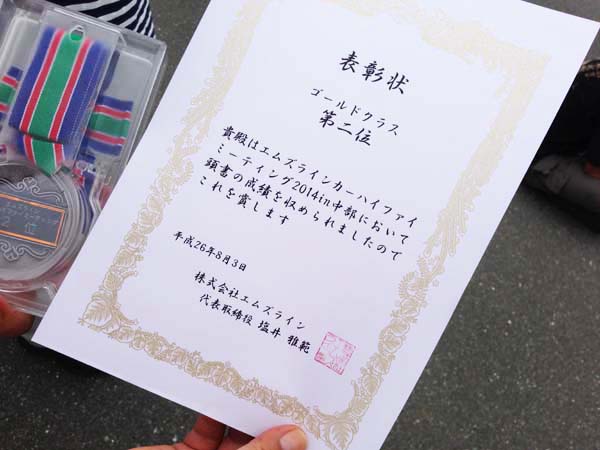 表彰状
ゴールドクラス
第二位
貴殿はエムズラインカーハイファイ
ミーティング2014in中部において
頭書の成績を収められましたので
これを賞します
平成26年8月3日
株式会社エムズライン
代表取締役 塩井 雅範